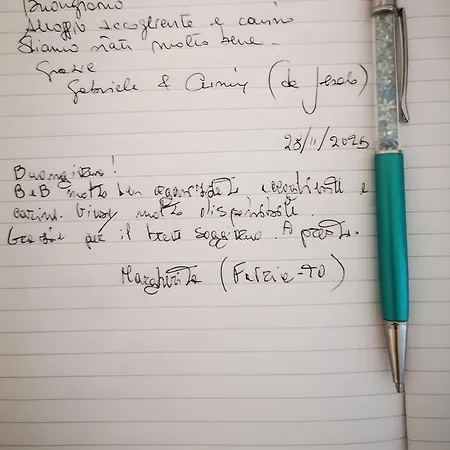 Buongiorno
Alloggio accogliente e carino
Siamo stati molto bene.
Grazie
Gabriele & (da Jesolo)
25/11/2025
Buongiorno!
B&B molto ben organizzato accogliente e
carino. molto disponibile.
Grazie per il breve soggiorno. A presto.
Margherita ( -TO)